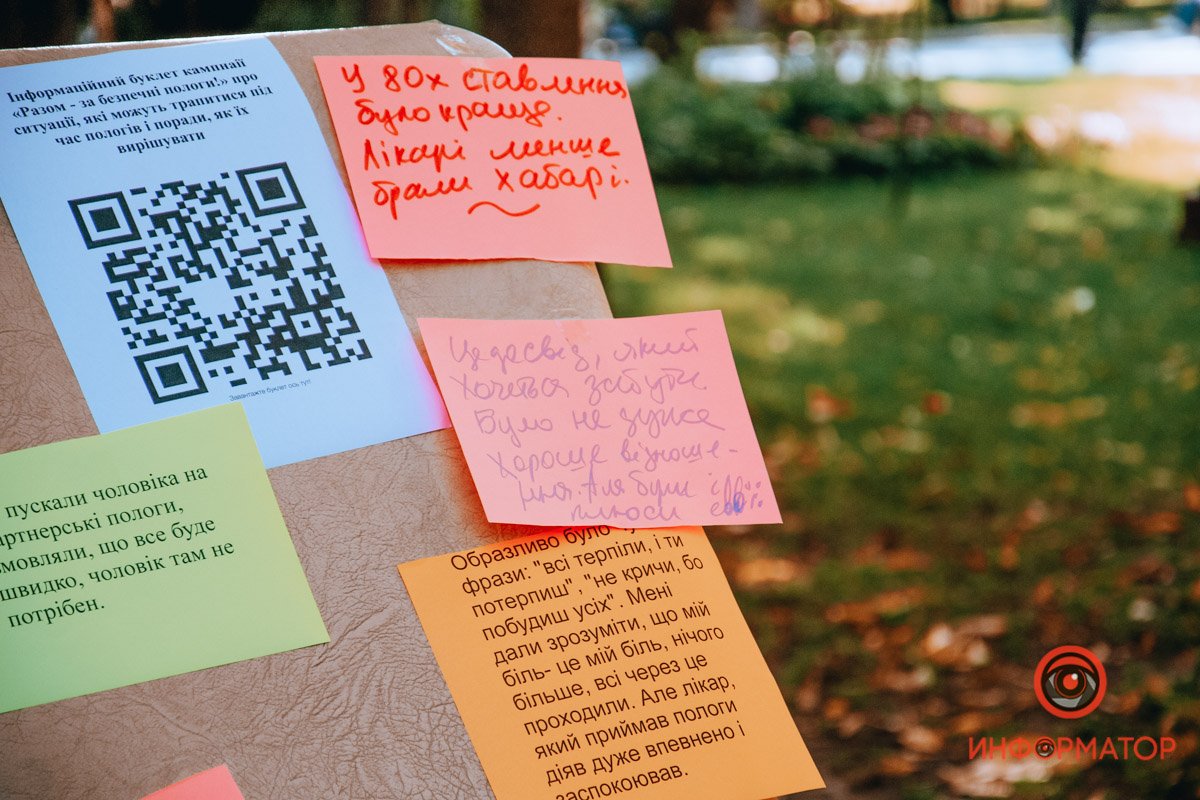 Інформаційний буклет кампанії
«Разом - за безпечні пологи!» про
ситуації, які можуть трапитися під
час пологів і поради, як їх
вирішувати
Завантажте буклет ось тут!
У 80х ставлення
було краще.
Лікарі менше
брали хабарі.
Це досвід, який
хочеться забути.
Було не дуже
хороше відноше-
ння. Але були і
плюси
пускали чоловіка на
артнерські пологи,
мовляли, що все буде
швидко, чоловік там не
потрібен.
Образливо було
фрази: "всі терпіли, і ти
потерпиш", "не кричи, бо
побудиш усіх". Мені
дали зрозуміти, що мій
біль- це мій біль, нічого
більше, всі через це
проходили. Але лікар,
який приймав пологи
діяв дуже впевнено і
заспокоював.
ИНФОРМАТОР